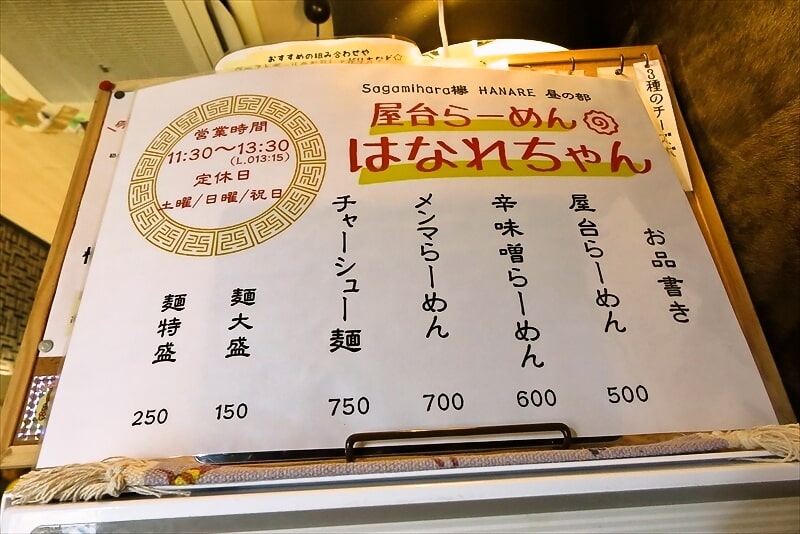 おすすめの組み合わせや
Sagamihara欅 HANARE 昼の部
屋台らーめん
はなれちゃん
営業時間
11:30〜13:30
(L.O13:15)
定休日
土曜/日曜/祝日
3種のチーズ
お品書き
屋台らーめん 500
辛味噌らーめん 600
メンマらーめん 700
チャーシュー麺 750
麺大盛 150
麺特盛 250